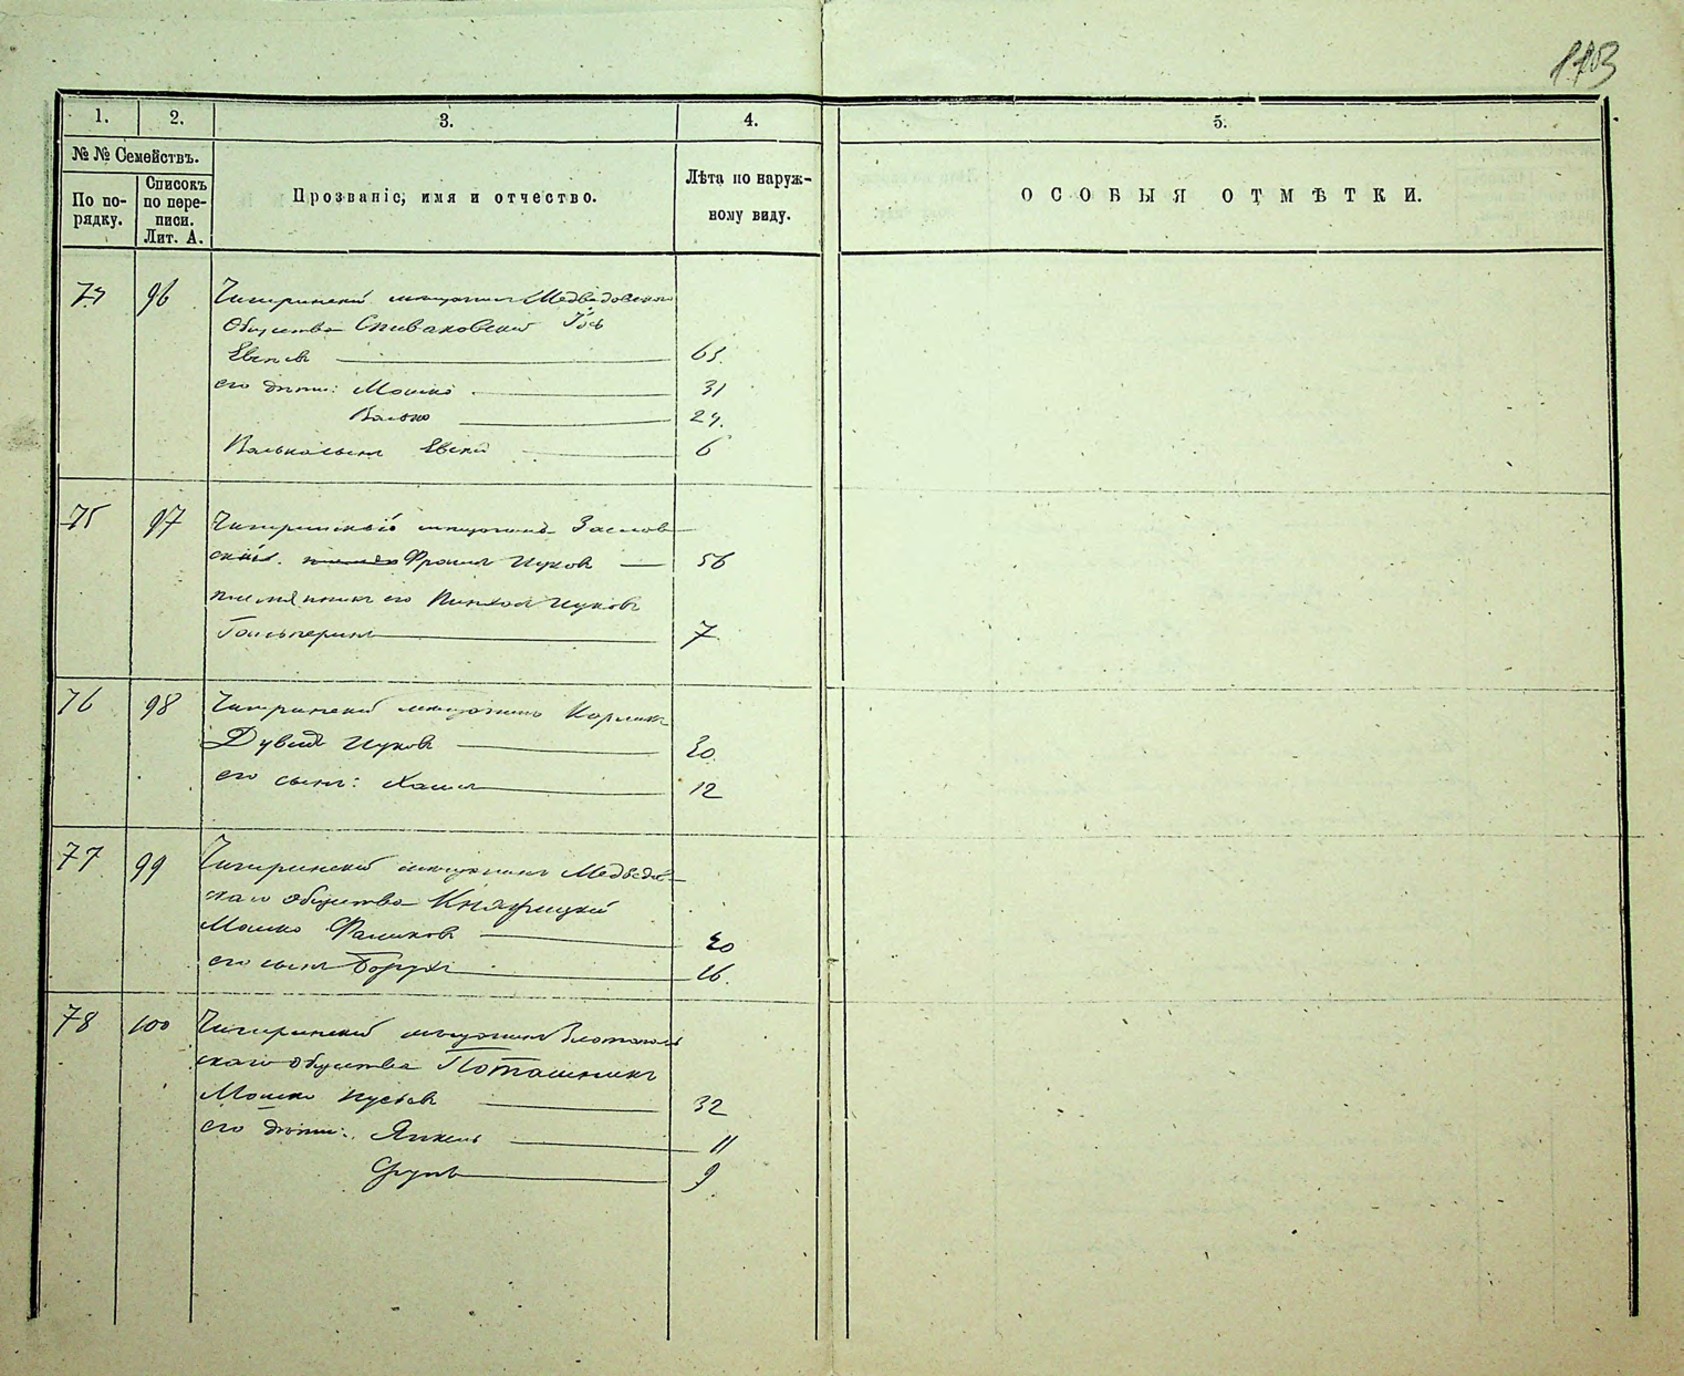 1. 2. 3. 4. 5.
№ № Семействъ.
По порядку.
Списокъ по переписи. Лит. А.
Прозваніе, имя и отчество.
Лѣта по наружному виду.
ОСОБЫЯ ОТМѢТКИ.
96 Чигиринскій мѣщанинъ Медведовскаго
Общества Спиваковскій Іось
63.
его дѣти: Мошко 31
Валько
Валька сынъ 6
75 97 Чигиринскій мѣщанинъ Заслав
скій. Фроимъ Ицковъ — 56
племянникъ его Пинхос Ицковъ
Гальперинъ 7
76 98 Чигиринскій мѣщанинъ Корлик
Дувидъ Ицковъ
его сынъ: Хаимъ 12
77 99 Чигиринскій мѣщанинъ Медведов-
скаго общества
Мошко Фаликовъ
его сынъ Борухъ 16.
78 100 Чигиринскій мѣщанинъ Златополь
скаго общества Поташникъ
Мошко 32
его дѣти: Янкель 11
Сруль 9